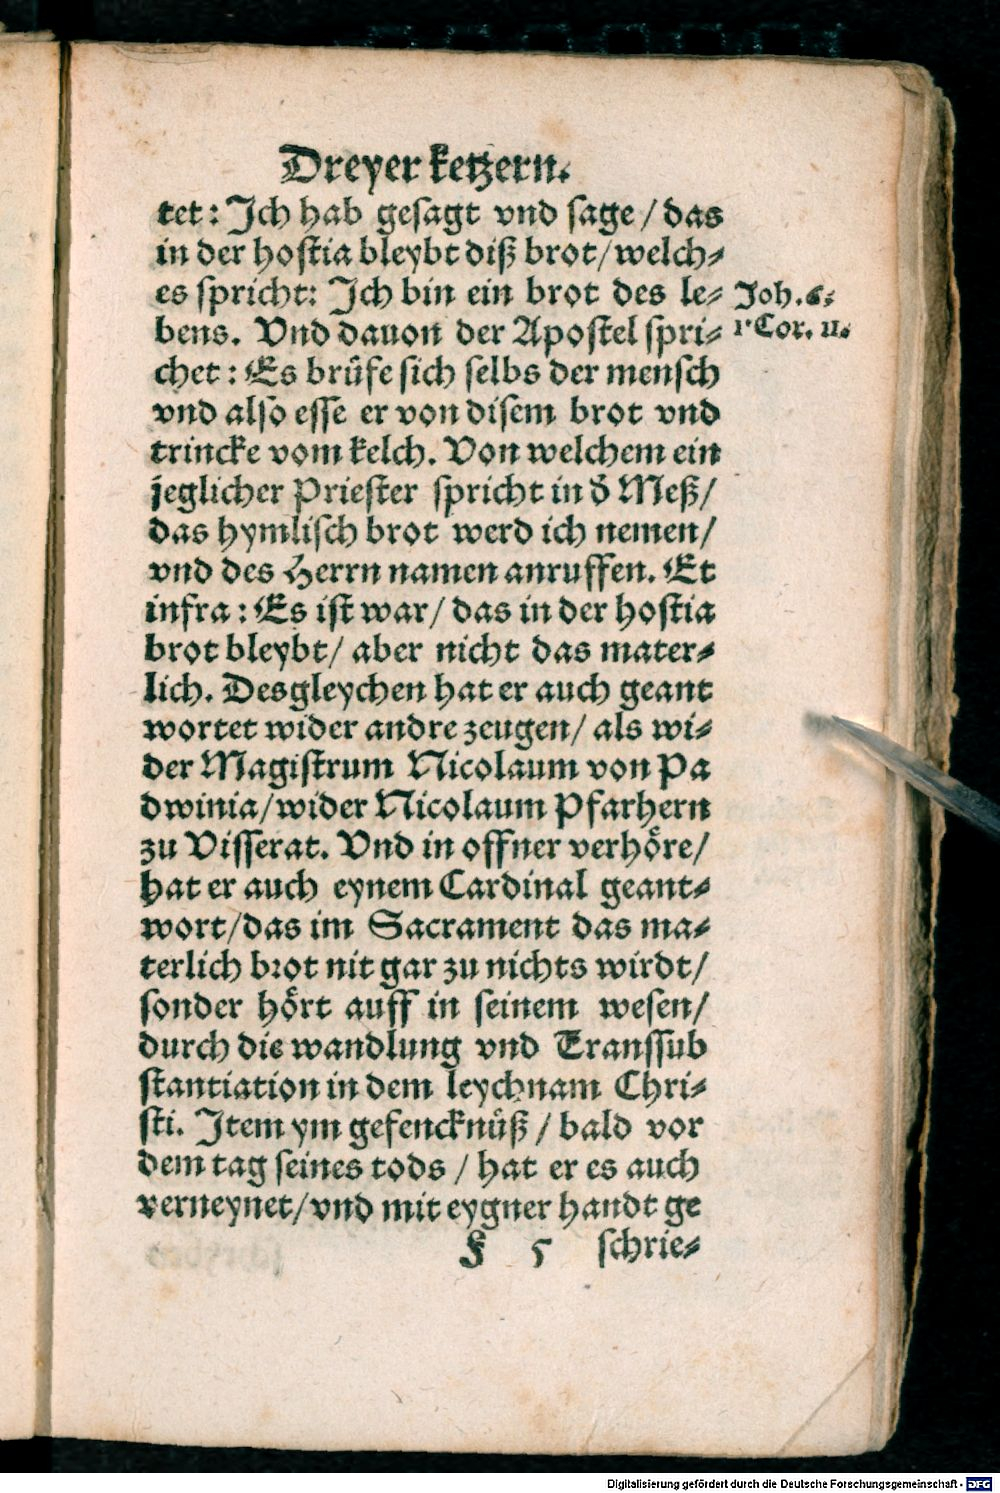 Dreyer ketzern.
tet: Ich hab gesagt vnd sage / das
in der hostia bleybt diß brot/welch⸗
es spricht: Ich bin ein brot des le⸗
Joh. 6.
bens. Vnd dauon der Apostel spri⸗
1 Cor. 11.
chet: Es brůfe sich selbs der mensch
vnd also esse er von disem brot vnd
trincke vom kelch. Von welchem ein
jeglicher Priester spricht in ď Meß/
das hymlisch brot werd ich nemen/
vnd des Herrn namen anruffen. Et
infra: Es ist war/ das in der hostia
brot bleybt/ aber nicht das mater⸗
lich. Desgleychen hat er auch geant
wortet wider andre zeugen/ als wi⸗
der Magistrum Nicolaum von Pa
dwinia/wider Nicolaum Pfarhern
zu Visserat. Vnd in offner verhöre/
hat er auch eynem Cardinal geant⸗
wort/das im Sacrament das ma⸗
terlich brot nit gar zu nichts wirdt/
sonder hört auff in seinem wesen/
durch die wandlung vnd Transsub
stantiation in dem leychnam Chri⸗
sti. Item ym gefencknůß / bald vor
dem tag seines tods / hat er es auch
verneynet/vnd mit eygner handt ge
F 5 schrie⸗
Digitalisierung gefördert durch die Deutsche Forschungsgemeinschaft - DFG